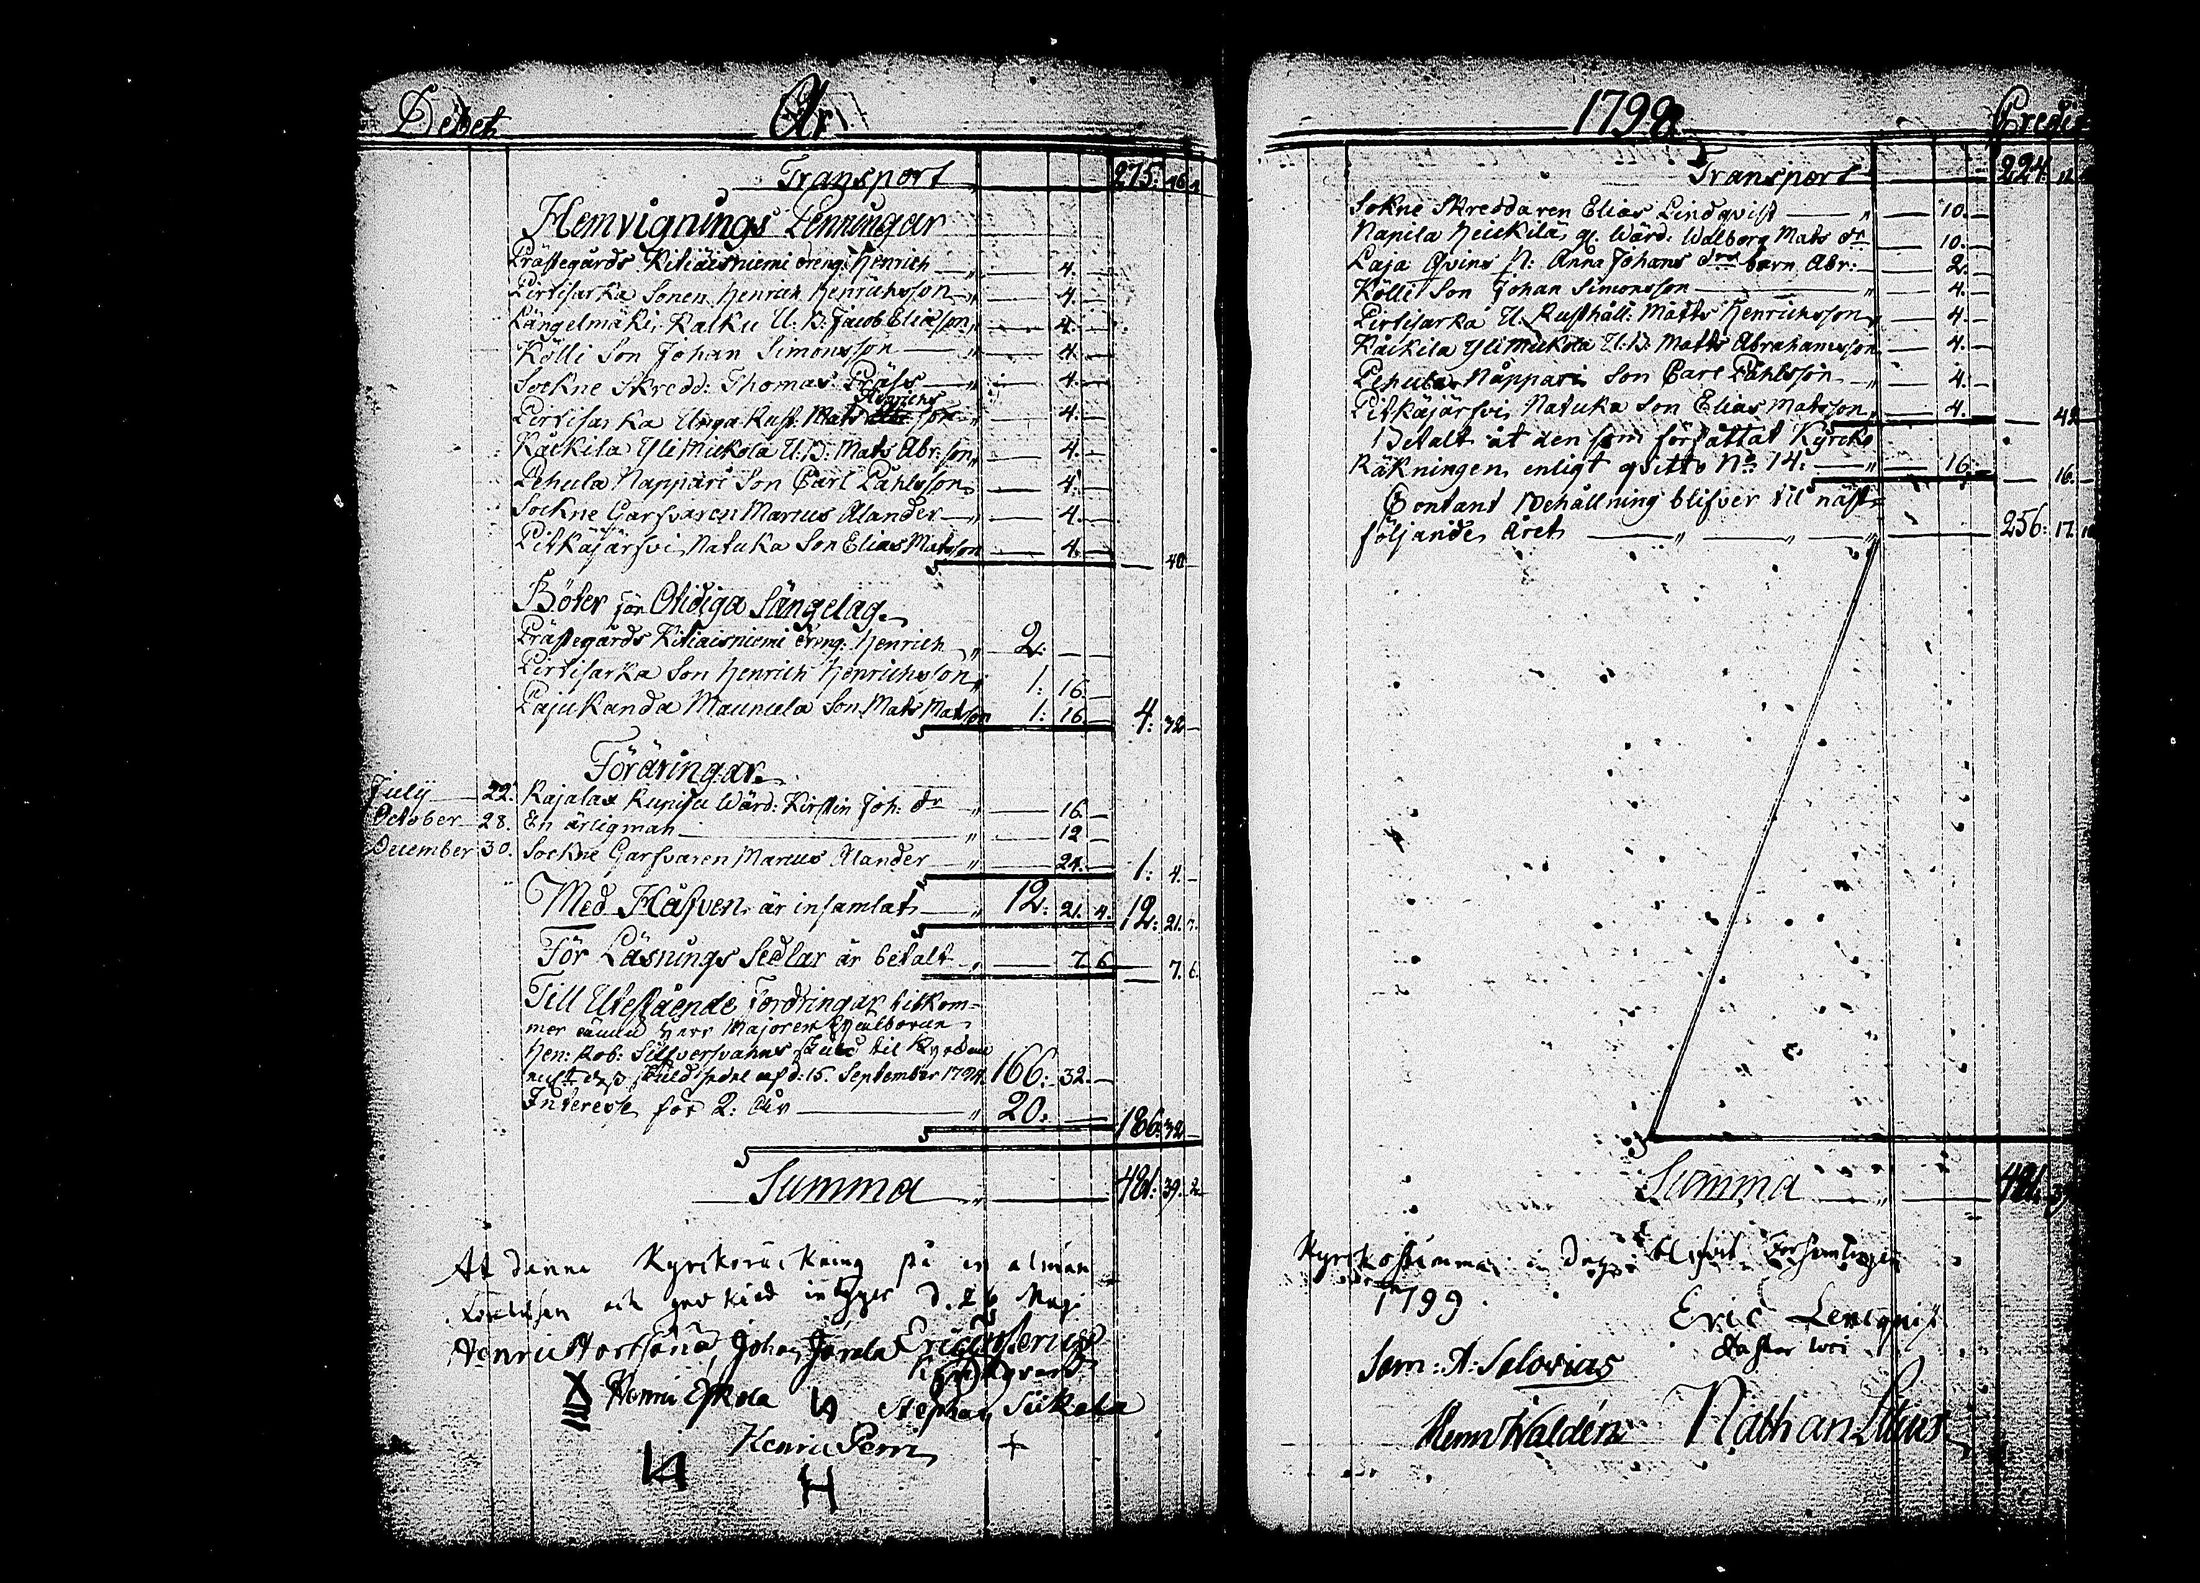 Debet År
Transport 275: 16 1
Hemvignings Penningar
Prästegårds Kitiäisniemi dreng: Henrich " — 4. —
Pirtisarka Sonen Henrich Henrichsson " — 4. —
Längelmäki Kaiku U: B: Jacob Eliasson " — 4. —
Kölli Son Johan Simonsson — " — 4. —
Sockne Skredd: Thomas Präss — " — 4. —
Henrichs
Pirtisarka Unga Rust. Mats son " — 4. —
Kåckila Yli Nickola U: B: Mats Abr: son " — 4. —
Pehula Nappari Son Carl Påhlsson " — 4. —
Sockne Garfvaren Marcus Alander — " — 4. —
Pitkäjärfvi Natuka Son Elias Matsson — 4. — — 40 —
Böter för Otidiga Sängelag.
Prästegårds Kitiaisniemi dreng: Henrich " 2. — —
Pirtisarka Son Henrich Henrichsson " 1: 16. —
Pajukanda Maunula Son Mats Matsson 1: 16. — 4: 32 —
Föräringar.
July — 22. Rajalax Kunisu Wärd: Kirstin Joh: dr " — 16. —
October — 28. En ärligman — " — 12 —
December 30. Sockne Garfvaren Marcus Alander — " — 24. — 1: 4. —
Med Håfven är insamlat — " 12: 21. 4. 12: 21. 7.
För Läsnings Sedlar är betalt — " — 7. 6 — 7. 6.
Till Utestående Fordringar tilkom-
mer Herr Majoren
Hen: Rob: Silfversvahns skuld til Kyrckan
skuldsedel af d: 15. September 1794. 166: 32. —
Interesse för 2: År — " 20: — 186: 32
Summa " — 481: 39. 2
At denna Kyrckoräckning på en alman
och intyger d. 26 Maji
Henric Johan Jårela Eric
Henric Eskola Stephan Siikala
Henric Perri
+
1798 Credit
Transport 224:
Sokne Skreddaren Elias Lindqvist — " — 10. —
Napila Heickilä gl. Wärd: Walborg Mats dr — 10. —
Laja Qvins P: Anna Johans drs barn Abr: — 2. —
Kölli Son Johan Simonsson — " — 4. —
Pirtisarka U. Rusthåll: Matts Henrichsson " — 4. —
Kåckila Yli Nickola U: B: Matts Abrahamsson — 4. —
Pehula Nåppari Son Carl Påhlsson — " — 4. —
Pitkäjärfvi Natuka Son Elias Matsson " — 4. — — 42
Betalt åt den som författat Kyrcko
Räkningen enligt qvitto No 14. — " — 16. — — 16. —
Contant Behållning blifver til näst-
följande Året — " — " — " — 256: 17.
Summa — " — 481.
Kyrkostämma i dag blifvit
1799
Eric Lencqvist
Sam: A: Salovius
Henr Waldén Nathan